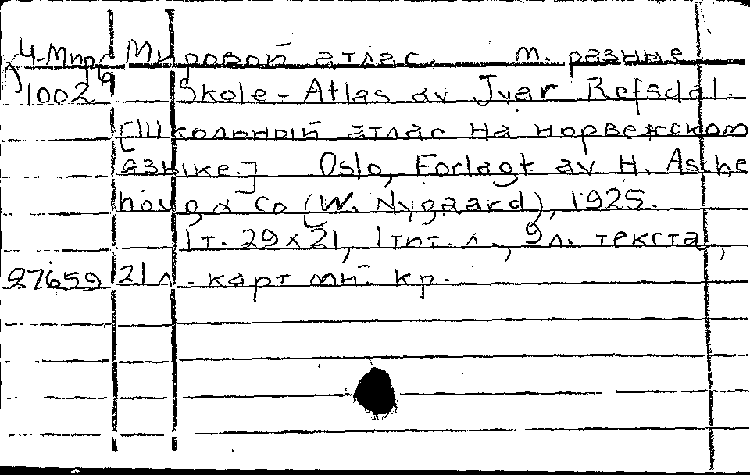 Ч-Мир Мировой атлас. м. разные
1002 Skole-Atlas av Jvar Refsdal.
[Школьный атлас на норвежском
языке.] Oslo, Forlagt av H. Asche
houg & Co (W. Nygaard), 1925.
1т. 29x21, 1 тит. л., 9л. текста,
97659 21 л. карт мн. кр.